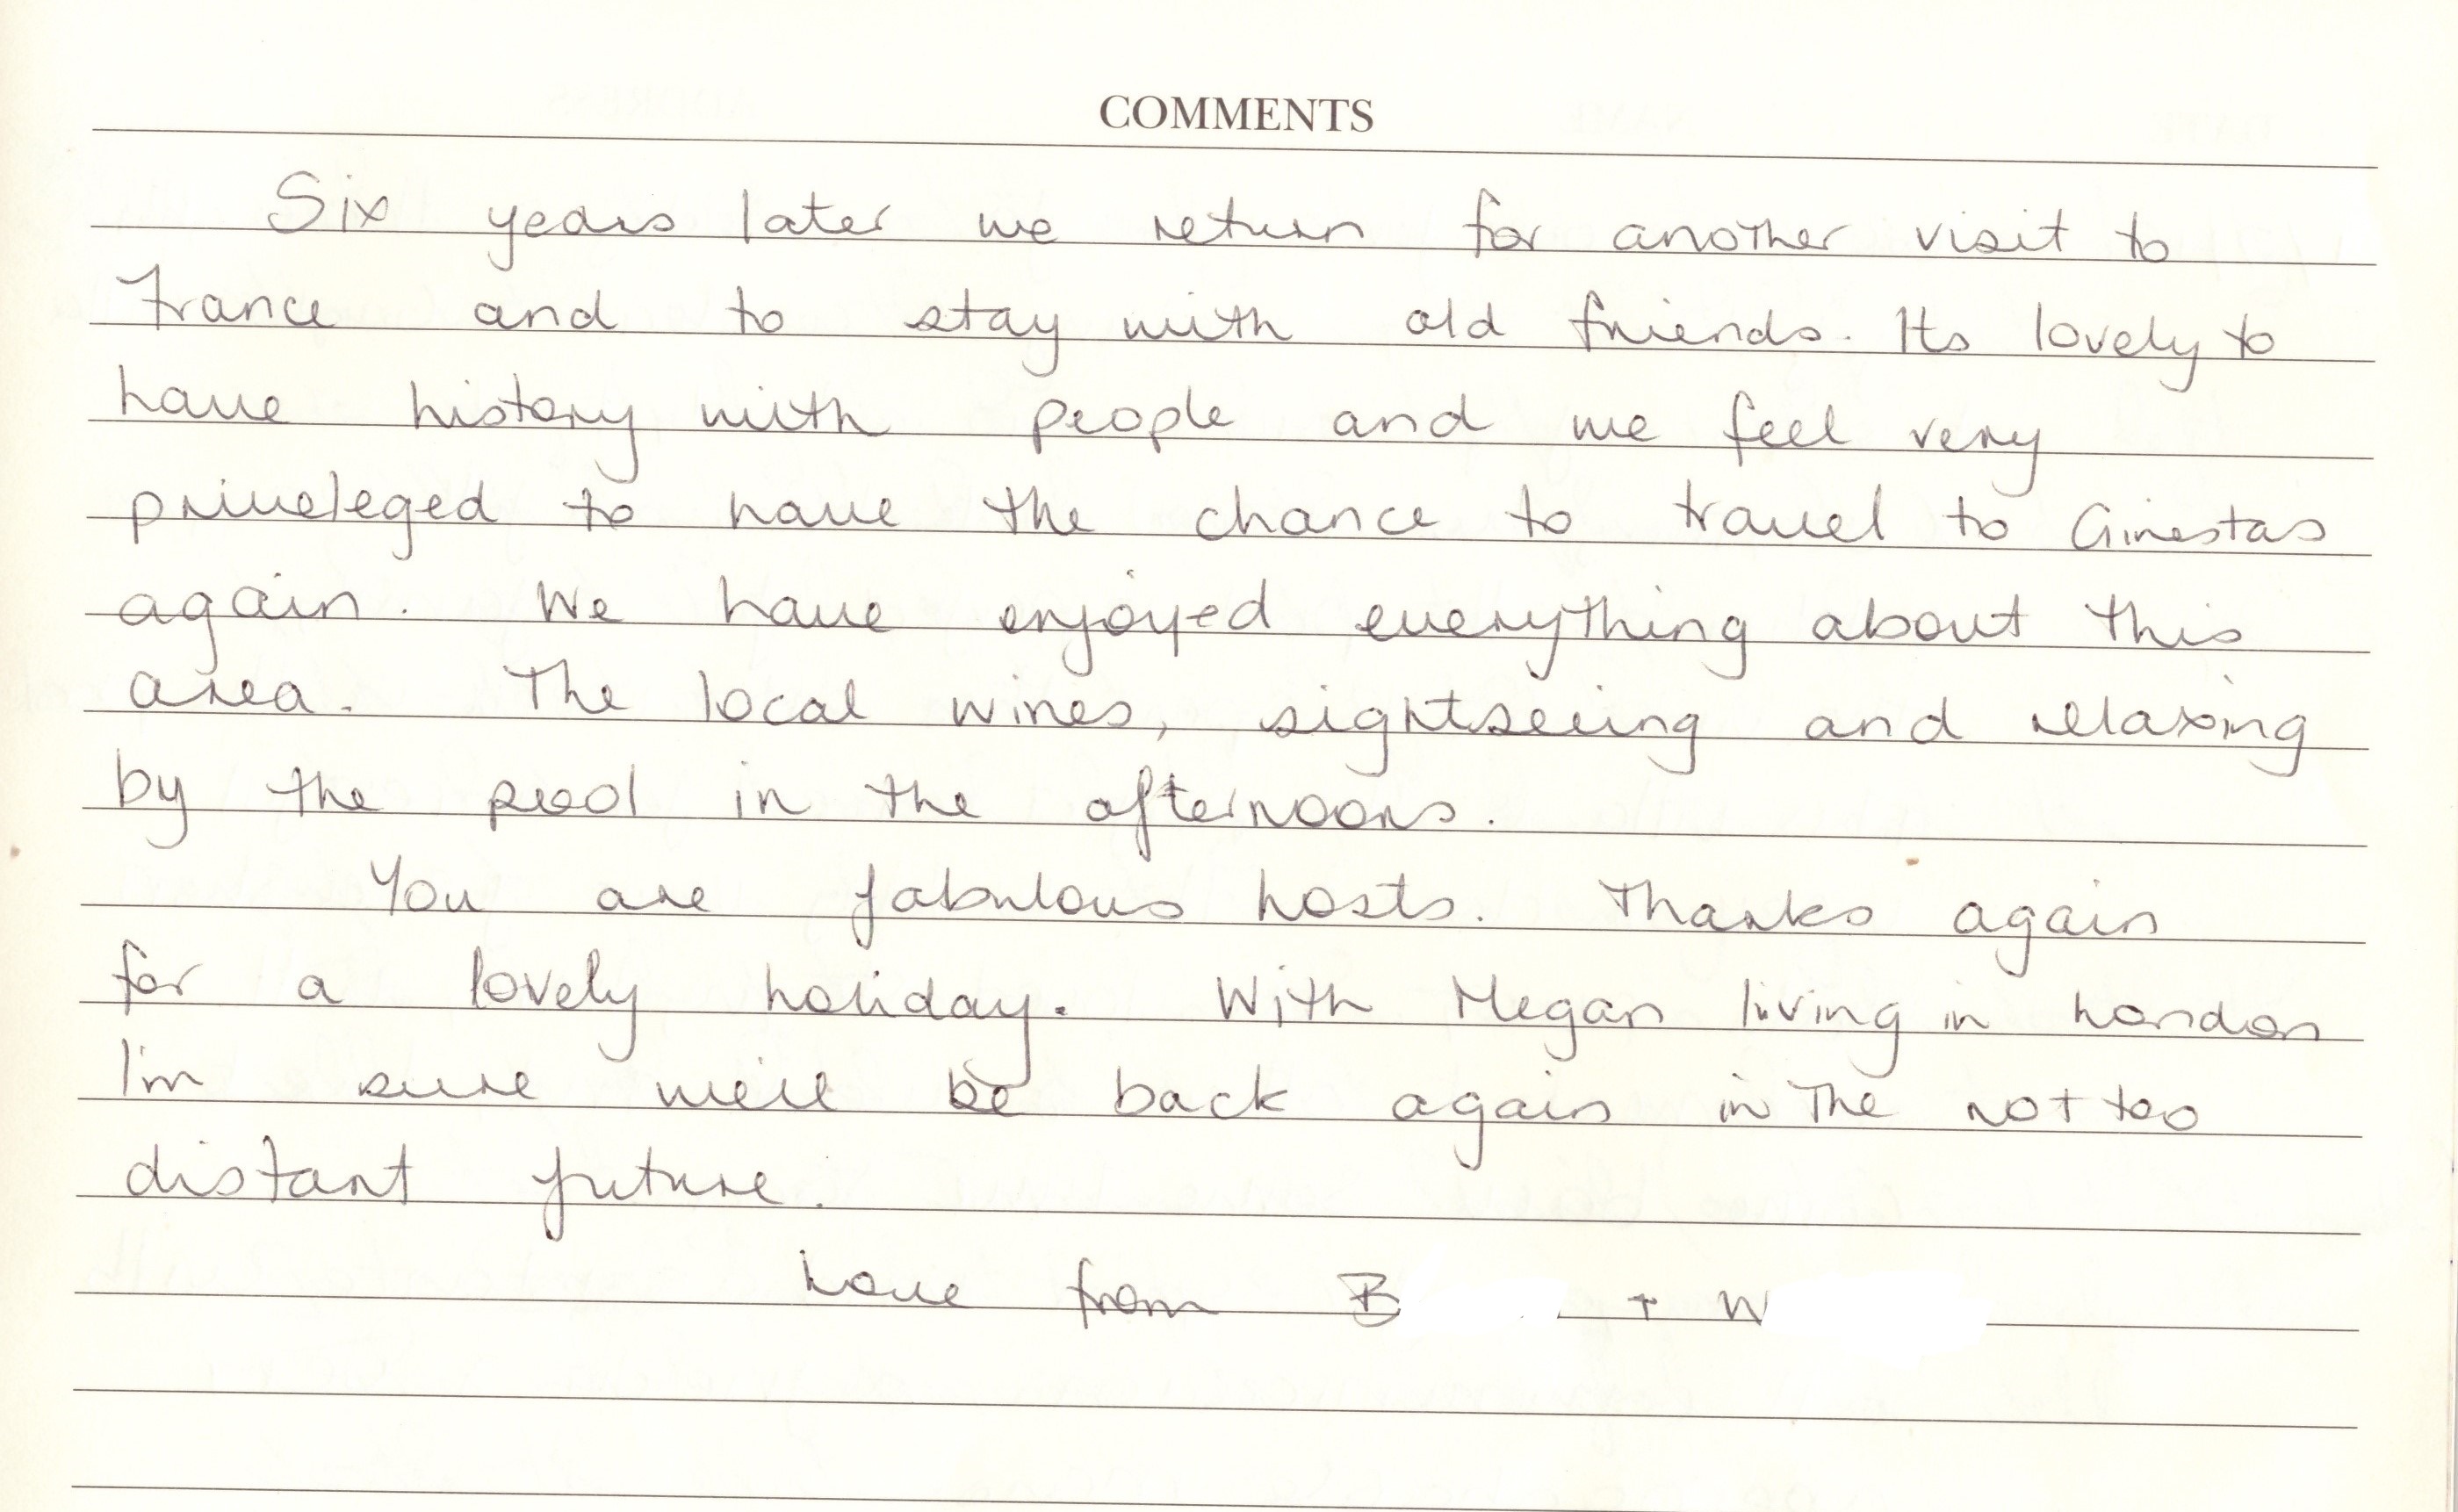 COMMENTS
Six years later we return for another visit to
France and to stay with old friends. Its lovely to
have history with people and we feel very
priveleged to have the chance to travel to Ginestas
again. We have enjoyed everything about this
area. The local wines, sightseeing and relaxing
by the pool in the afternoons.
You are fabulous hosts. Thanks again
for a lovely holiday. With Megan living in London
I'm sure we'll be back again in the not too
distant future.
Love from B + W